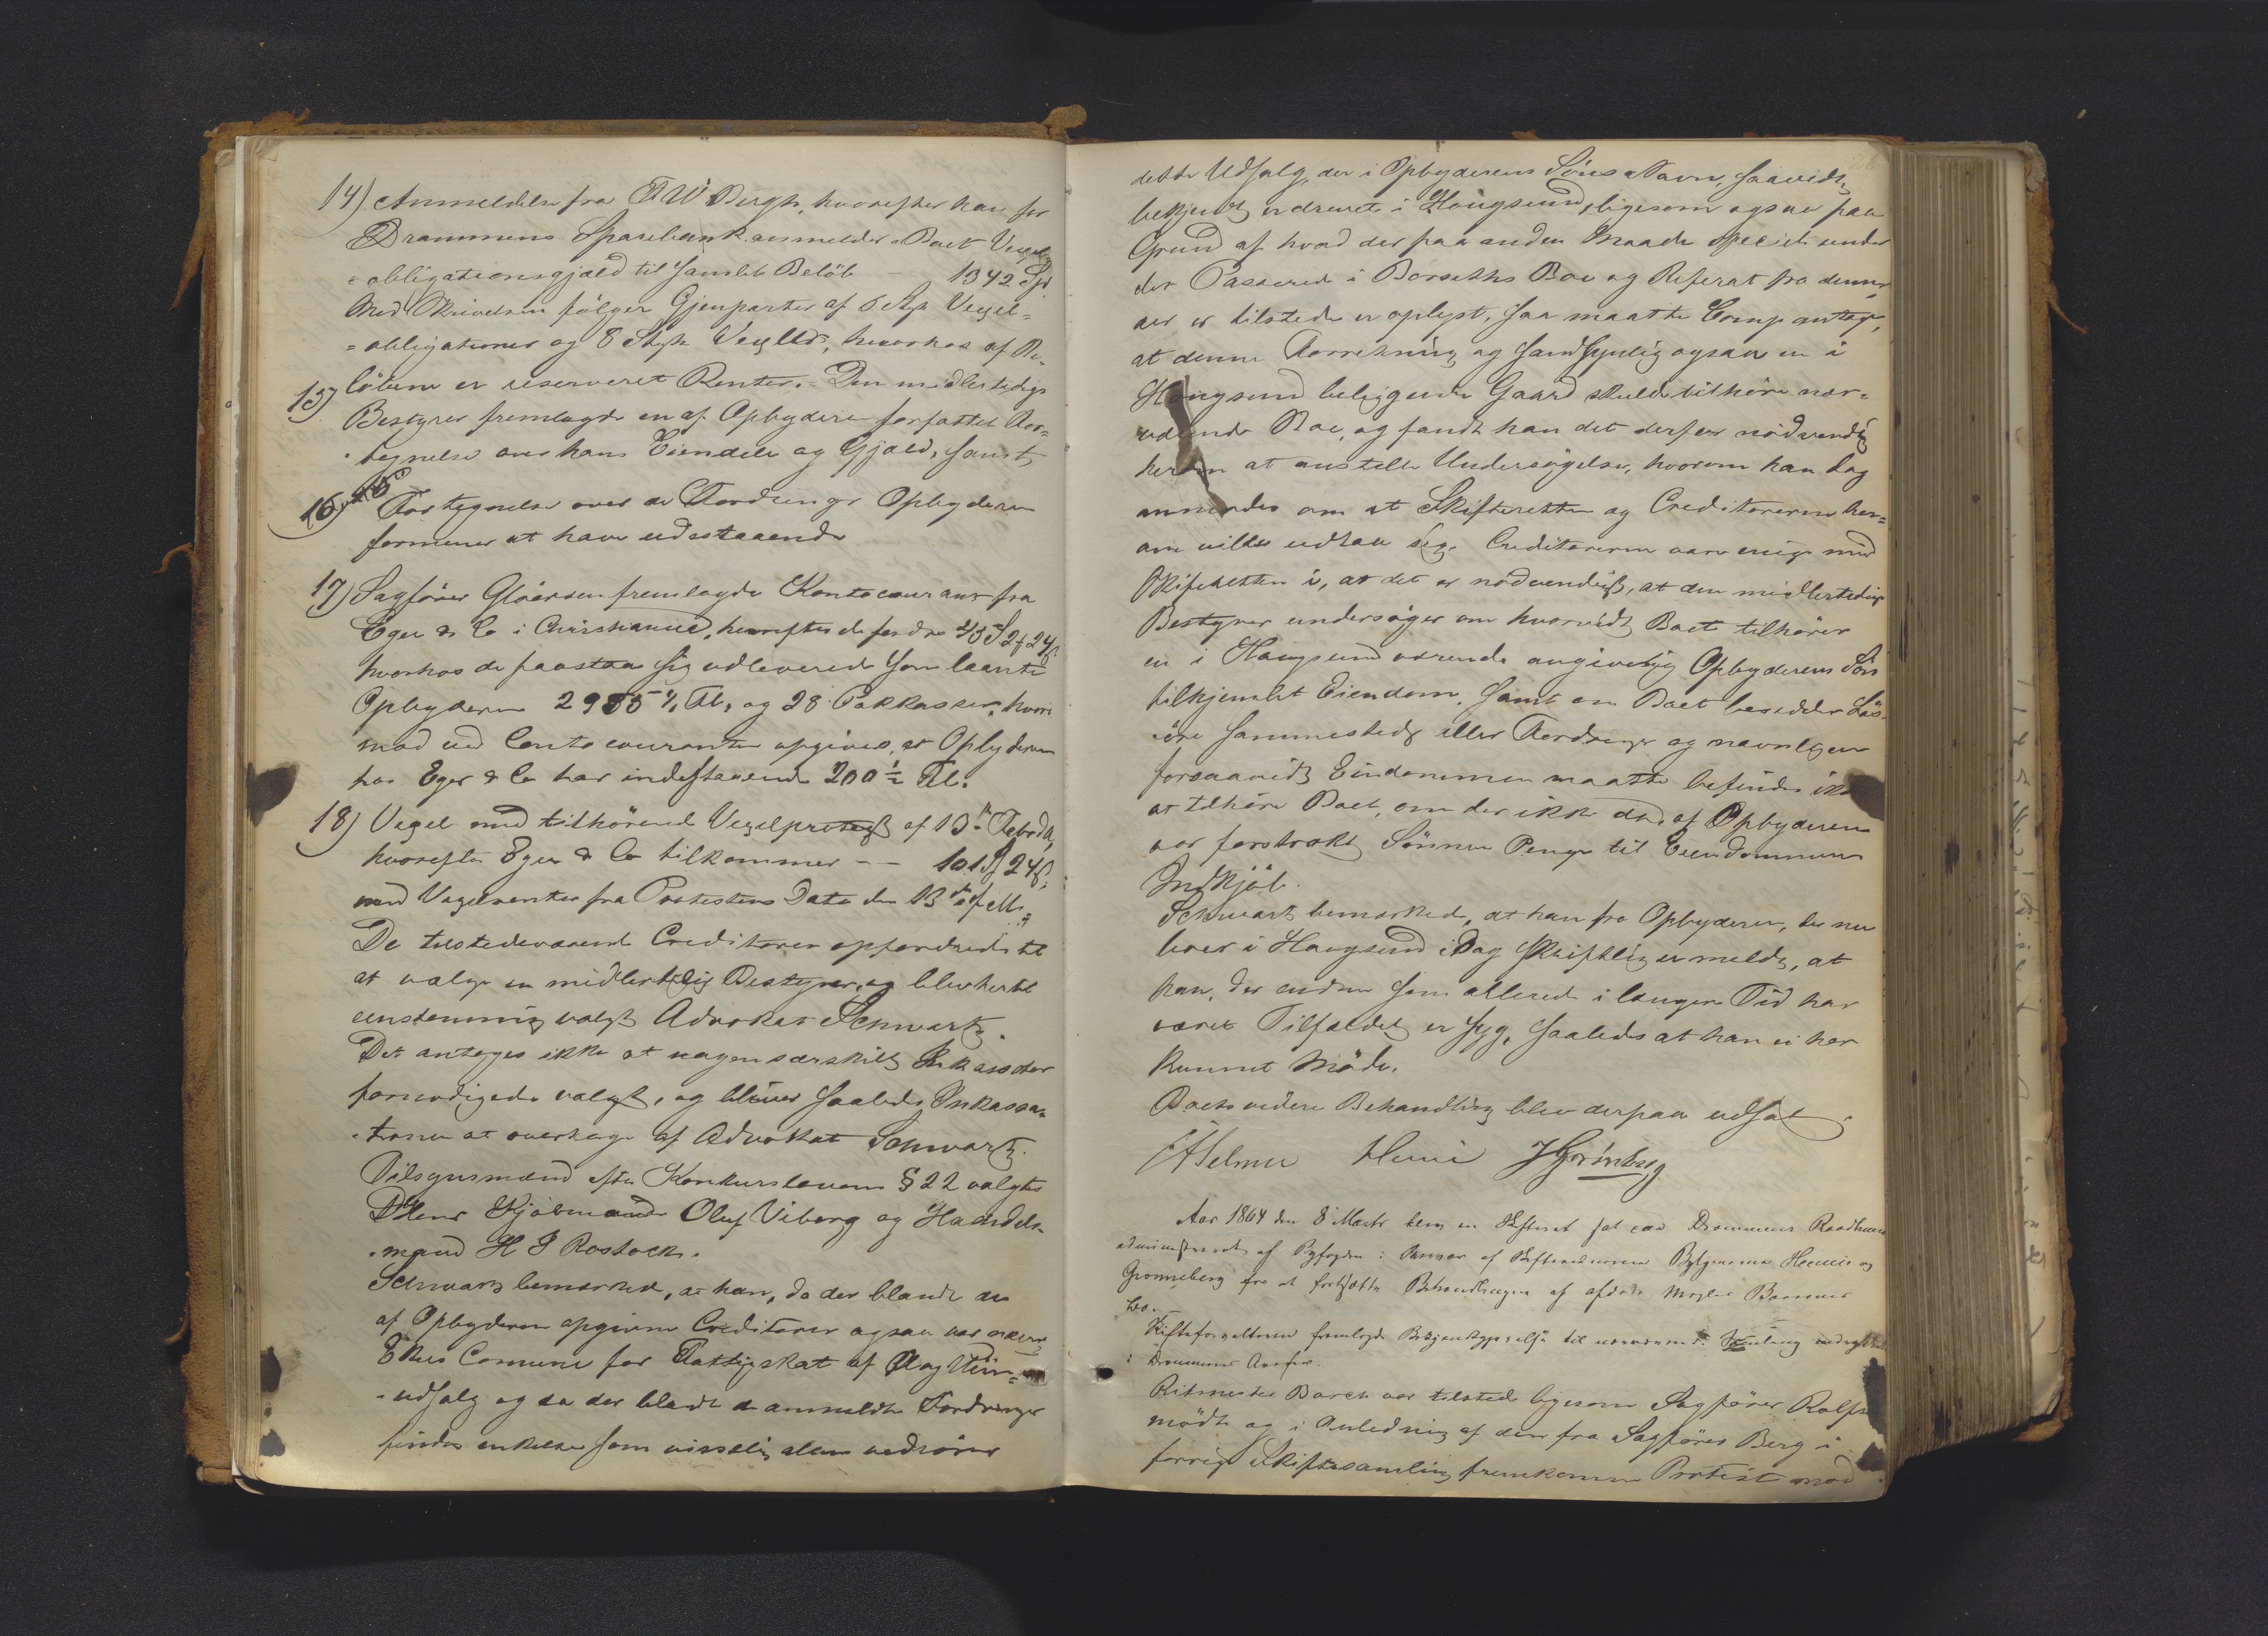 14) Anmeldelse fra F W Bergh, hvorefter han for
Drammens Sparebank anmelder i Boet Vexel
=obligationsgjæld til samlet Beløb — 1342 Spd
Med Skrivelsen følger Gjenparter af 6 Stk Vexel=
=obligationer og 8 Stk Vexler, hvorhos af Be=
løbene er reserveret Renter. Den midlertidige
15) Bestyrer fremlagde en af Opbyderen forfattet For=
tegnelse over hans Eiendele og Gjæld, samt
16) Fortegnelse over de Fordringer Opbyderen
formener at have udestaaende
17) Sagfører Gløersen fremlagde Kontocourant fra
Eger & Co i Christiania, hvorefter de fordre
hvorhos de paastaa sig udleverede som laante
Opbyderen og 28 Pakkasser, hvori
mod ved Contocouranten opgives, at Opbyderen
hos Eger & Co har indestaaende 200 ½ Fl.
18) Vexel med tilhørende Vexelprotest af 13de Febr d A,
hvorefter Eger & Co tilkommer -- 101 24 ß.
med Vexelrenter fra Protestens Dato den 13de f M.
De tilstedeværende Creditorer opfordredes til
at vælge en midlertidig Bestyrer, og blev hertil
eenstemmig valgt Advokat Schwartz.
Det antoges ikke at nogen særskilt Inkassator
fornødigedes valgt, og bliver saaledes Inkassa=
=tionen at overtage af Advokat Schwartz.
Tilsynsmænd efter Konkurslovens § 22 valgtes
DHerr Kjøbmand Oluf Viborg og Handels=
=mand H J Rostock.
Schwartz bemærkede, at han, da der blandt de
af Opbyderen opgivne Creditorer ogsaa var nævnt
Ekers Comune for Fattigskat af Øl og Viin=
=udsalg og da der blandt de anmeldte Fordringer
findes enkelte som visselig alene vedrører
dette Udsalg, der i Opbyderens Søns Navn, saavidt
bekjendt er drevet i Hougsund, ligesom ogsaa paa
Grund af hvad der paa anden Maade specielt under
det Passerede i Borseths Boe og Referat fra denne,
der er tilstede er oplyst, saa maatte Comp antage,
at denne Forretning og sandsynlig ogsaa en i
Hougsund beliggende Gaard skulde tilhøre nær=
værende Boe, og fandt han det derfor nødvendig
herom at anstille Undersøgelse, hvorom han dog
anmodes om at Skifteretten og Creditorerne her=
om vilde udtale sig. Creditorerne vare enige med
Skifteretten i, at det er nødvendigt, at den midlertidige
Bestyrer undersøger om hvorvidt Boet tilhører
en i Hougsund værende angivelig Opbyderens Søn
tilhjemlet Eiendom, samt om Boet besidder Løs=
=øre sammesteds eller Fordringer og navnligen
forsaavidt Eiendommen maatte befindes ikke
at tilhøre Boet, om der ikke da af Opbyderen
var forstrakt Sønnen Penge til Eiendommens
Indkjøb.
Schwartz bemærkede, at han fra Opbyderen, der nu
boer i Hougsund i Dag skriftlig er meldt, at
han, der endnu som allerede i længere Tid har
været Tilfældet er syg, saaledes at han ei har
kunnet møde.
Boets videre Behandling blev derpaa udsat.
Helmer Heune J Grønberg
Aar 1864 den 8 Marts blev en Skifteret sat paa Drammens Raadhuus
administreret af Byfogden i Nærvær af Skifteretsvidnerne Heune og
Grønneberg for at fortsætte Behandlingen af afdøde Mægler Bommens
Bo.
Skifteforvalteren fremlagde Bekjendtgjørelse til nærværende Samling indrykket
i Drammens Avis.
Ritmester Borch var tilstede ligesom Sagfører Rolfsen
mødte og i Anledning af den fra Sagfører Berg i
forrige Skiftesamling fremkomne Protest mod